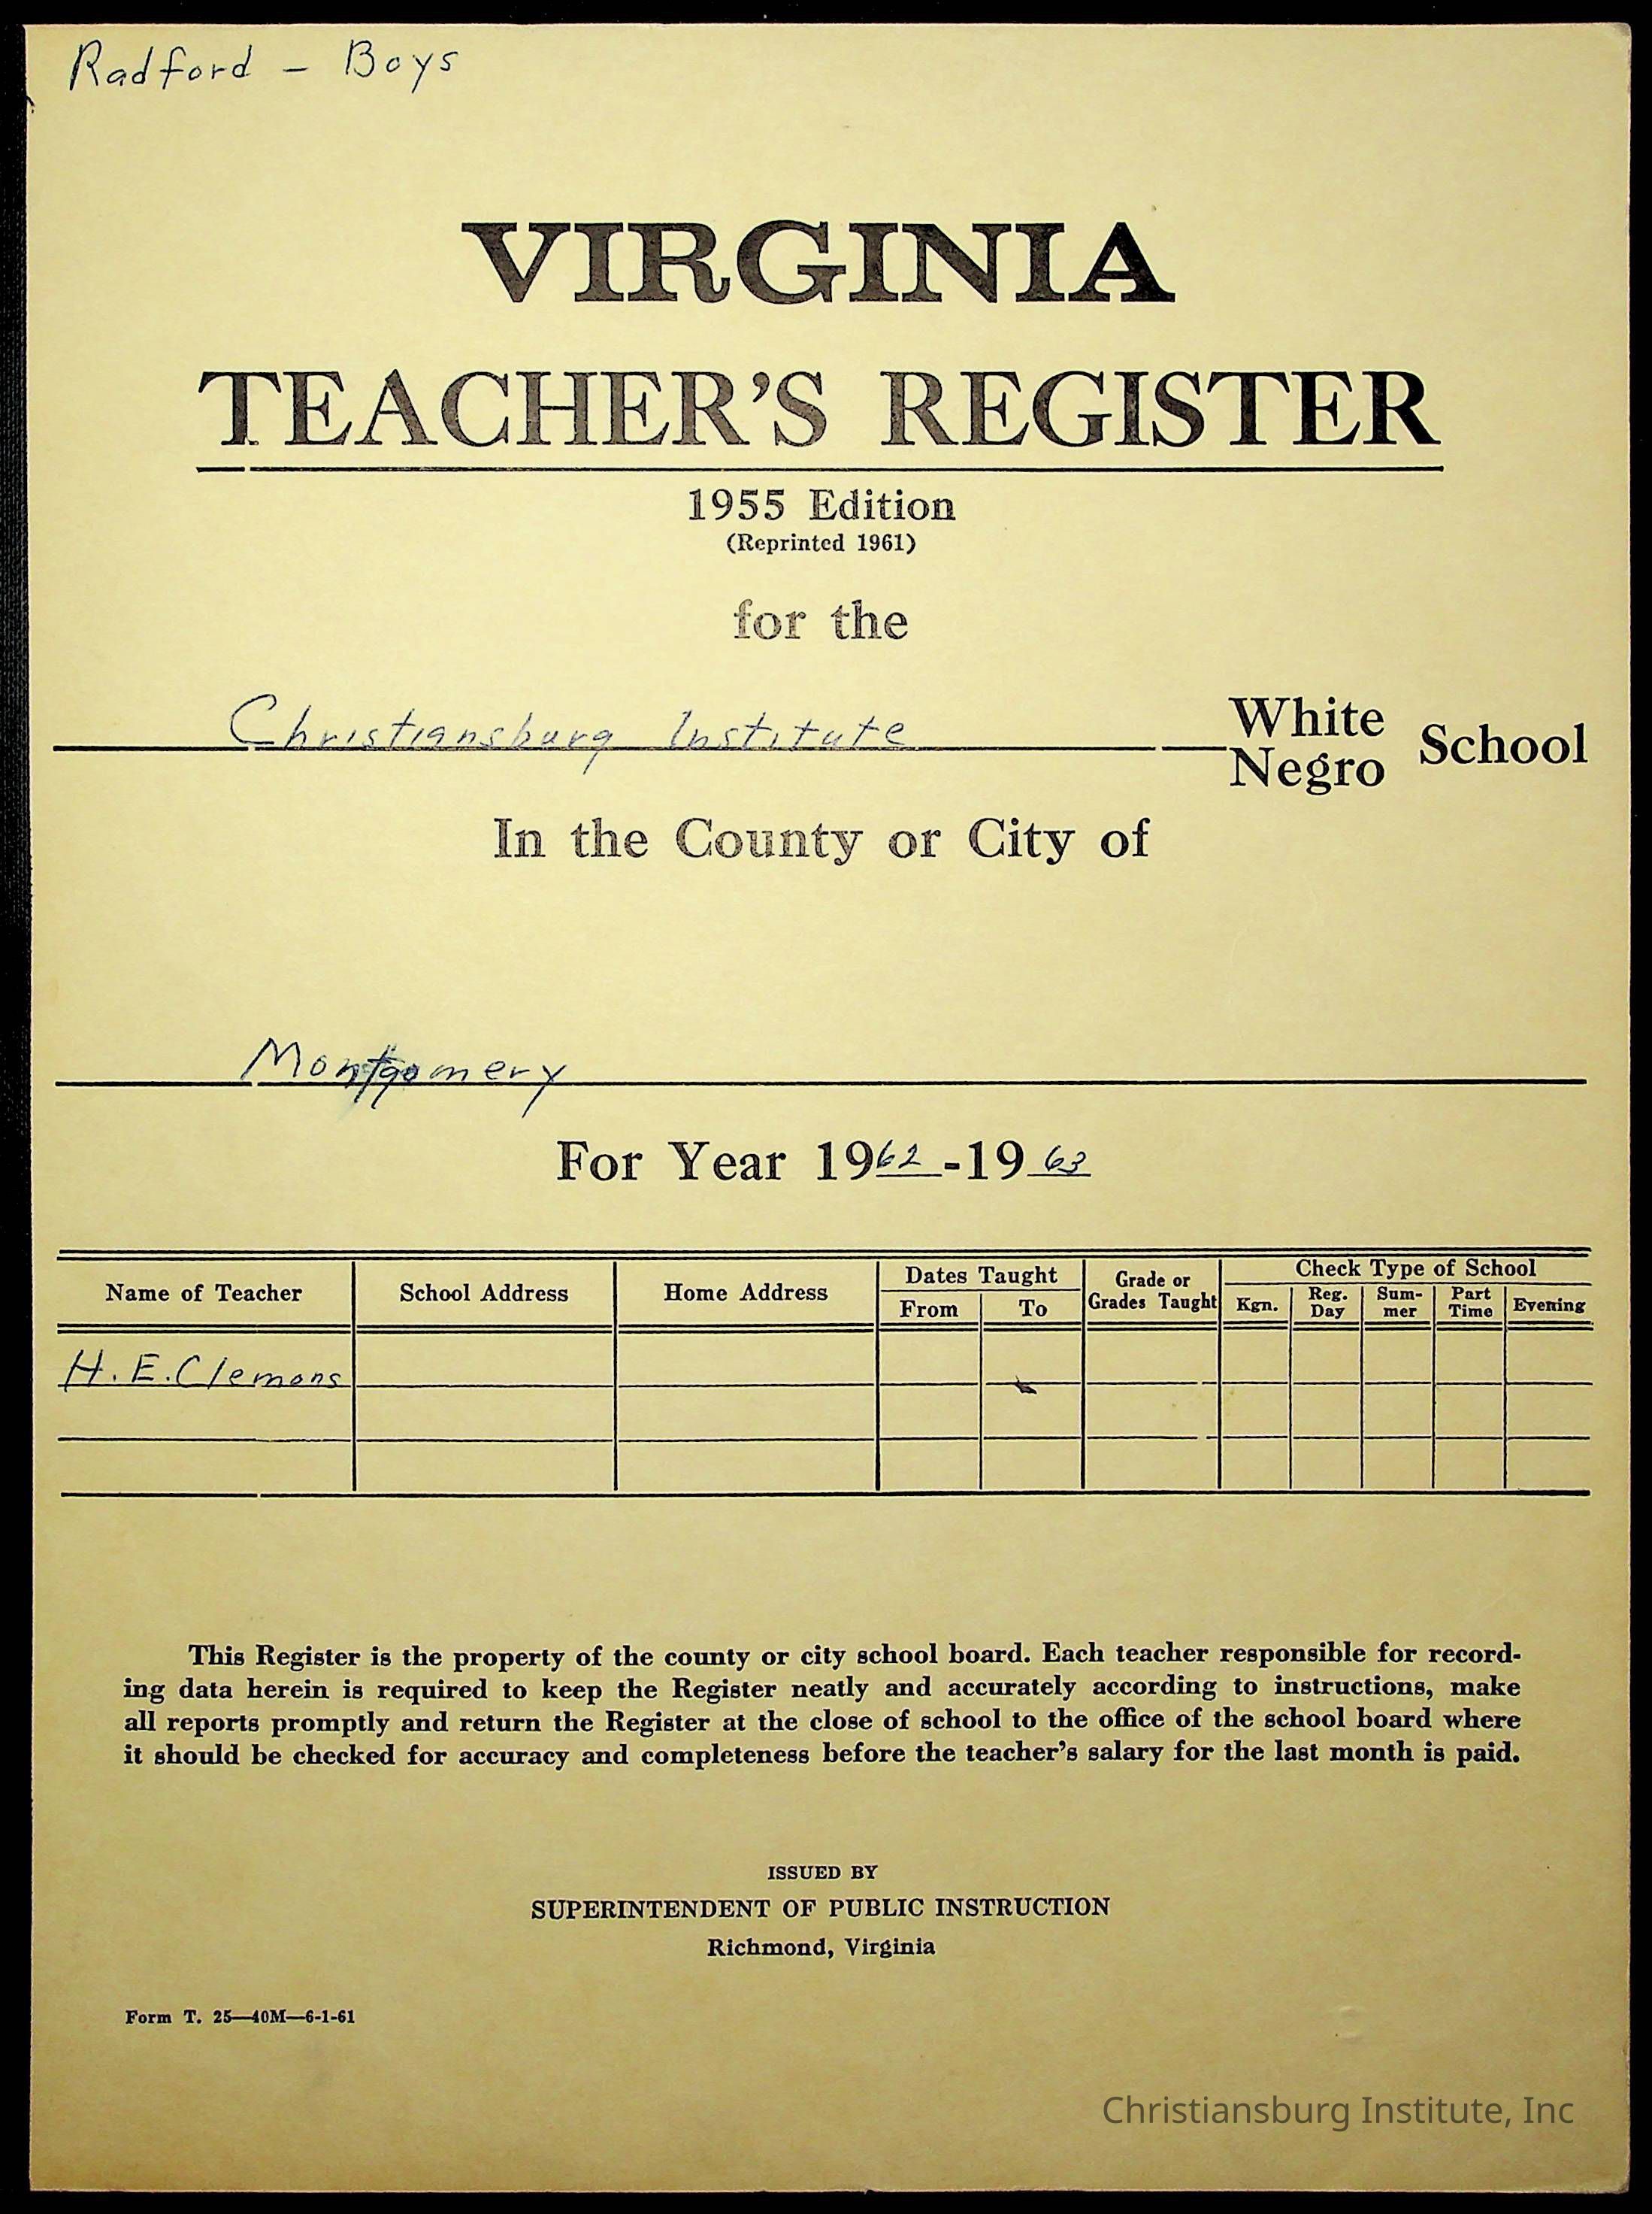 Radford - Boys
VIRGINIA
TEACHER'S REGISTER
1955 Edition
(Reprinted 1961)
for the
Christiansburg Institute White Negro School
In the County or City of
Montgomery
For Year 1962-1963
Name of Teacher School Address Home Address Dates Taught From To Grade or Grades Taught Check Type of School Kgn. Reg. Day Sum-mer Part Time Evening
H. E. Clemons
This Register is the property of the county or city school board. Each teacher responsible for record-
ing data herein is required to keep the Register neatly and accurately according to instructions, make
all reports promptly and return the Register at the close of school to the office of the school board where
it should be checked for accuracy and completeness before the teacher's salary for the last month is paid.
ISSUED BY
SUPERINTENDENT OF PUBLIC INSTRUCTION
Richmond, Virginia
Form T. 25—40M—6-1-61
Christiansburg Institute, Inc